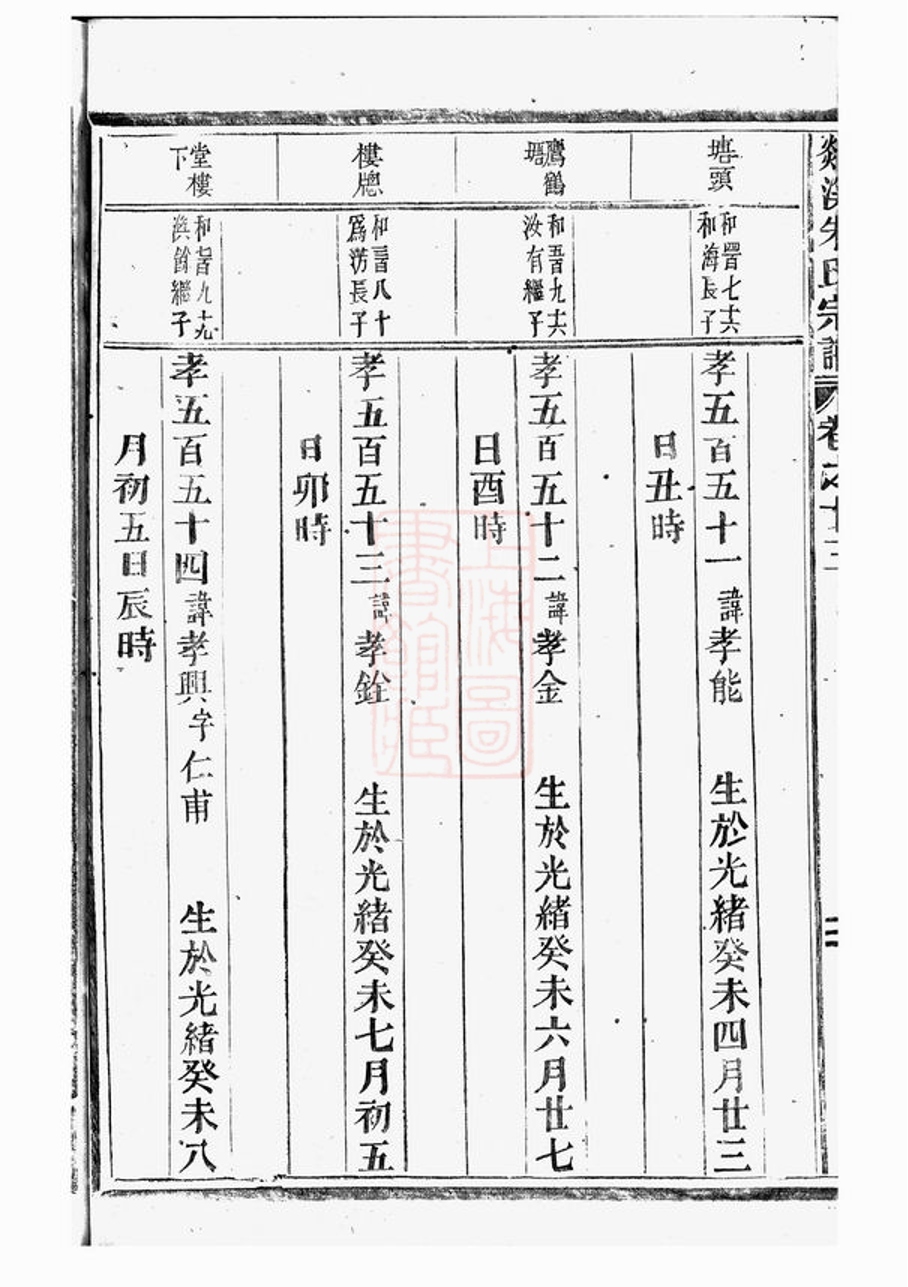 朱氏宗譜 卷之十三
塘頭
和四百七十六
和海長子
孝五百五十一 諱孝能 生於光緒癸未四月廿三
日丑時
鷹鶴
塘
和五百九十六
汝有繼子
孝五百五十二 諱孝金 生於光緒癸未六月廿七
日酉時
樓牎
和三百八十
爲滂長子
孝五百五十三 諱孝銓 生於光緒癸未七月初五
日卯時
堂樓
下
和七百九十九
繼子
孝五百五十四 諱孝興字仁甫 生於光緒癸未八
月初五日辰時
上海圖
書館藏